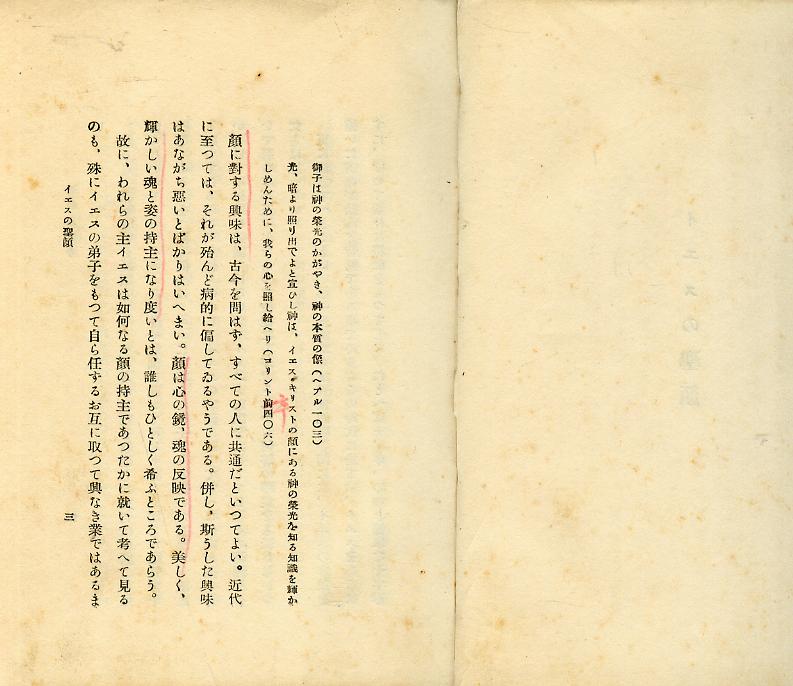 御子は神の榮光のかがやき、神の本質の像（ヘブル一〇三）
光、暗より照り出でよと宣ひし神は、イエス・キリストの顔にある神の榮光を知る知識を輝か
しめんために、我らの心を照し給へり（コリント前四〇六）
顔に對する興味は、古今を問はず、すべての人に共通だといつてよい。近代
に至つては、それが殆んど病的に偏してゐるやうである。併し、斯うした興味
はあながち惡いとばかりはいへまい。顔は心の鏡、魂の反映である。美しく、
輝かしい魂と姿の持主になり度いとは、誰しもひとしく希ふところであらう。
故に、われらの主イエスは如何なる顔の持主であつたかに就いて考へて見る
のも、殊にイエスの弟子をもつて自ら任ずるお互に取つて興なき業ではあるま
イエスの聖顔
三
イエスの聖顔